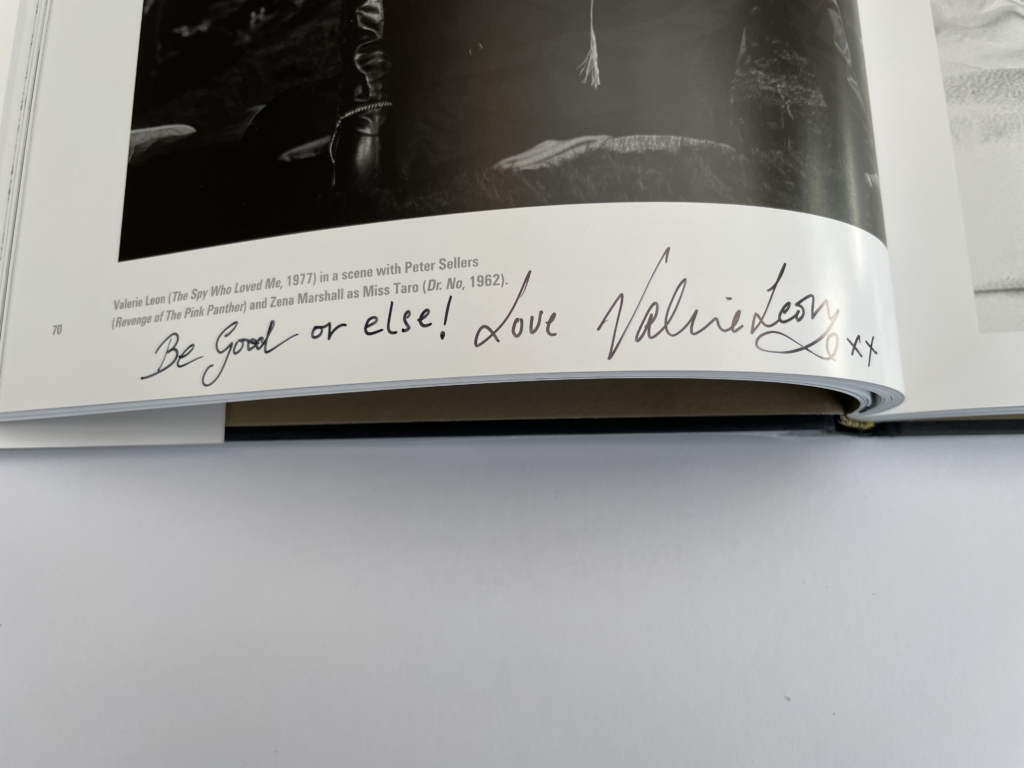 Valerie Leon (The Spy Who Loved Me, 1977) in a scene with Peter Sellers
(Revenge of The Pink Panther) and Zena Marshall as Miss Taro (Dr. No, 1962).
70
Be Good or else! Love Valerie Leon xx